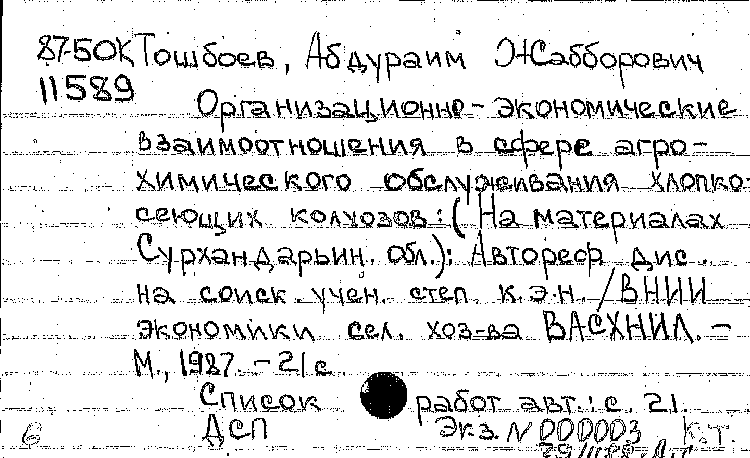 87-50К Тошбоев, Абдураим Жабборович
11589
Организационно-экономические
взаимоотношения в сфере агро-
химического обслуживания хлопко-
сеющих колхозов: (На материалах
Сурхандарьин. обл.): Автореф дис.
на соиск. учен. степ. к.э.н. / ВНИИ
экономики сел. хоз-ва ВАСХНИЛ. -
М., 1987. - 21 с
Список работ авт.: с. 21.
6 ДСП Экз. N 000003 К.Т.